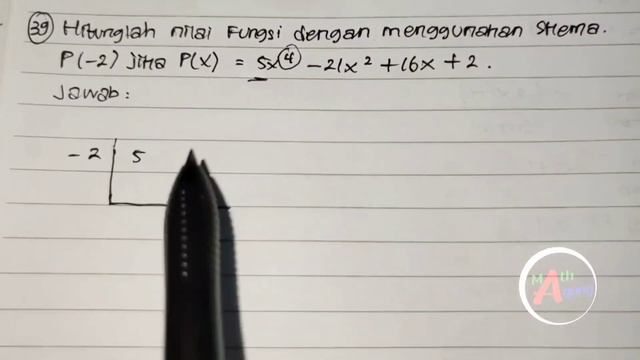 39 Hitunglah nilai Fungsi dengan menggunakan Skema.
P(-2) Jika P(x) = 5x⁴ - 21x² + 16x + 2.
Jawab:
-2 | 5
Math